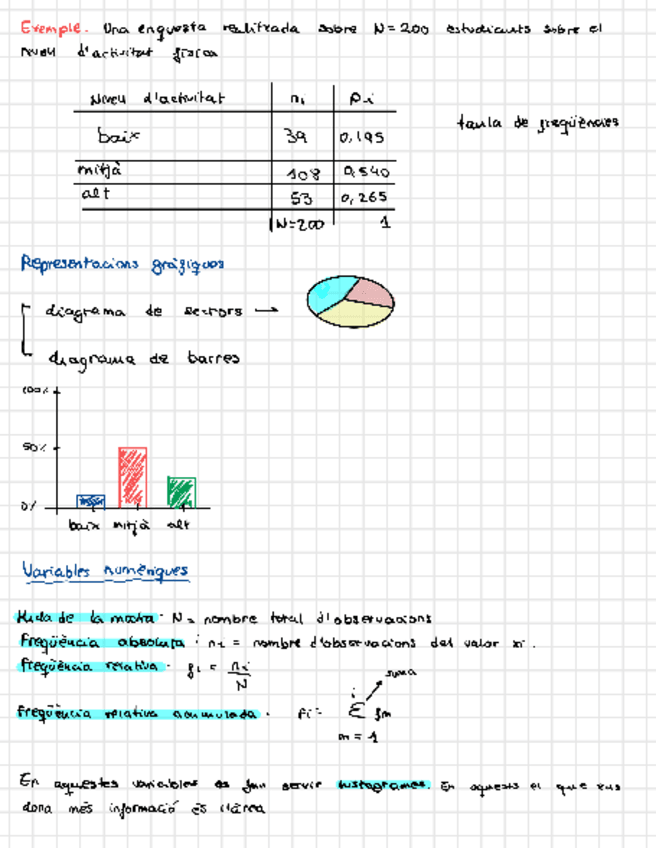 Exemple. Una enquesta realitzada sobre N=200 estudiants sobre el
nivell d'activitat física
Nivell d'activitat ni pi
baix 39 0,195
taula de freqüències
mitjà 108 0,540
alt 53 0,265
N=200 1
Representacions gràfiques
diagrama de sectors →
diagrama de barres
100%
50%
0%
baix mitjà alt
Variables numèriques
Mida de la mostra: N = nombre total d'observacions
Freqüència absoluta: ni = nombre d'observacions del valor xi.
Freqüència relativa: fi = ni/N
suma
i
Freqüència relativa acumulada: Fi = Σ fm
m = 1
En aquestes variables es fan servir histogrames. En aquests el que ens
dona més informació és l'àrea